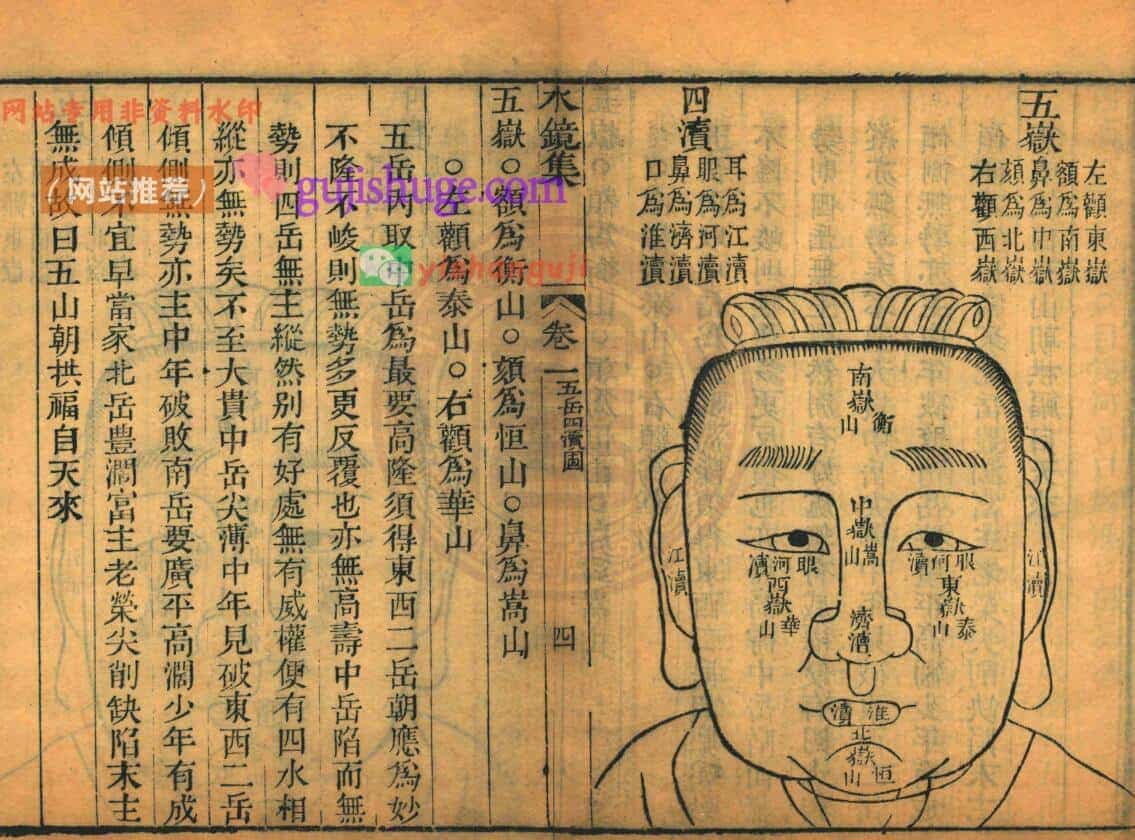 五嶽
左顴東嶽
額為南嶽
鼻為中嶽
頦為北嶽
右顴西嶽
四瀆
耳為江瀆
眼為河瀆
鼻為濟瀆
口為淮瀆
南嶽衡山
中嶽嵩山
眼河瀆
東嶽泰山
眼河瀆
西嶽華山
江瀆
江瀆
濟瀆
淮瀆
北嶽恒山
水鏡集 卷一 五岳四瀆圖 四
五嶽○額為衡山○頦為恒山○鼻為嵩山
○左顴為泰山○右顴為華山
五岳內取中岳為最要高隆須得東西二岳朝應為妙
不隆不峻則無勢多更反覆也亦無高壽中岳陷而無
勢則四岳無主縱然别有好處無有威權便有四水相
縱亦無勢矣不至大貴中岳尖薄中年見破東西二岳
傾側無勢亦主中年破敗南岳要廣平高濶少年有成
傾側不宜早當家北岳豊濶富主老榮尖削缺陷末主
無成故曰五山朝拱福自天來
网站专用非资料水印
（网站推荐）
gujishuge.com
yishanguji